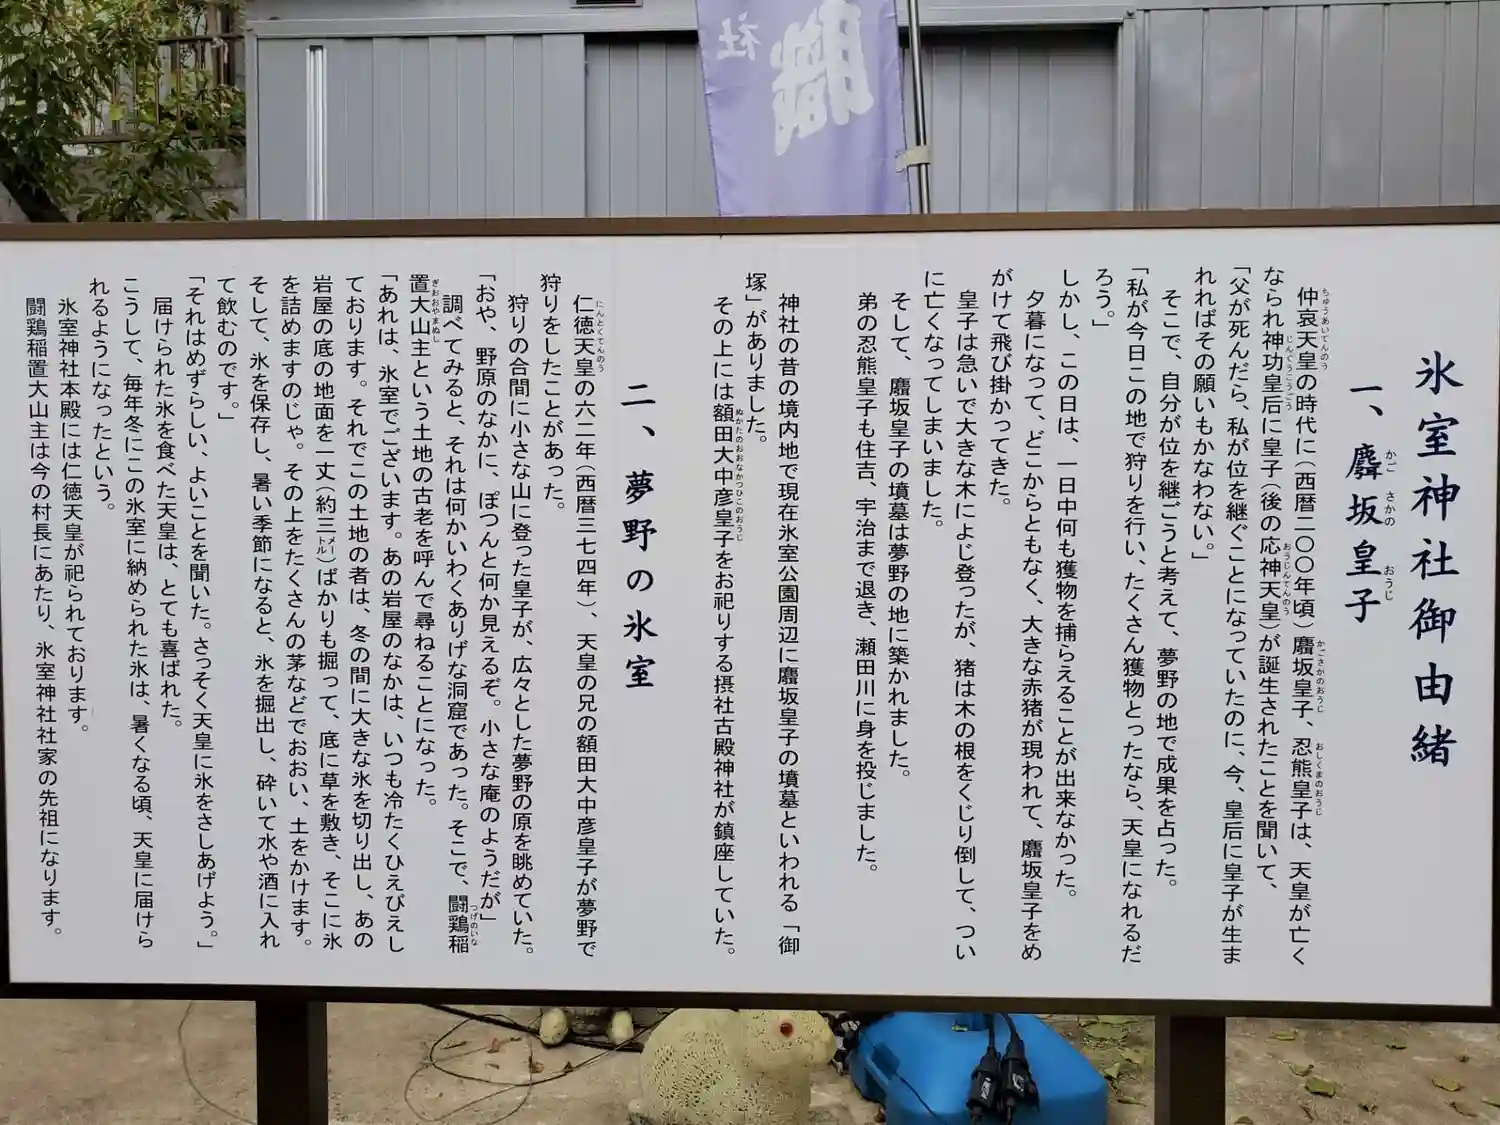 氷室神社御由緒
一、麛坂皇子
かご さかの おうじ
仲哀天皇の時代に(西暦二〇〇年頃)麛坂皇子、忍熊皇子は、天皇が亡く
ちゅうあいてんのう かごさかのおうじ おしくまのおうじ
なられ神功皇后に皇子(後の応神天皇)が誕生されたことを聞いて、
じんぐうこうごう おうじんてんのう
「父が死んだら、私が位を継ぐことになっていたのに、今、皇后に皇子が生ま
れればその願いもかなわない。」
そこで、自分が位を継ごうと考えて、夢野の地で成果を占った。
「私が今日この地で狩りを行い、たくさん獲物とったなら、天皇になれるだ
ろう。」
しかし、この日は、一日中何も獲物を捕らえることが出来なかった。
夕暮になって、どこからともなく、大きな赤猪が現われて、麛坂皇子をめ
がけて飛び掛かってきた。
皇子は急いで大きな木によじ登ったが、猪は木の根をくじり倒して、つい
に亡くなってしまいました。
そして、麛坂皇子の墳墓は夢野の地に築かれました。
弟の忍熊皇子も住吉、宇治まで退き、瀬田川に身を投じました。
神社の昔の境内地で現在氷室公園周辺に麛坂皇子の墳墓といわれる「御
塚」がありました。
その上には額田大中彦皇子をお祀りする摂社古殿神社が鎮座していた。
ぬかたのおおなかつひこのおうじ
二、夢野の氷室
仁徳天皇の六二年(西暦三七四年)、天皇の兄の額田大中彦皇子が夢野で
にんとくてんのう
狩りをしたことがあった。
狩りの合間に小さな山に登った皇子が、広々とした夢野の原を眺めていた。
「おや、野原のなかに、ぽつんと何か見えるぞ。小さな庵のようだが」
調べてみると、それは何かいわくありげな洞窟であった。そこで、闘鶏稲
つげのいな
置大山主という土地の古老を呼んで尋ねることになった。
ぎおおやまぬし
「あれは、氷室でございます。あの岩屋のなかは、いつも冷たくひえびえし
ております。それでこの土地の者は、冬の間に大きな氷を切り出し、あの
岩屋の底の地面を一丈(約三メートル)ばかりも掘って、底に草を敷き、そこに氷
を詰めますのじゃ。その上をたくさんの茅などでおおい、土をかけます。
そして、氷を保存し、暑い季節になると、氷を掘出し、砕いて水や酒に入れ
て飲むのです。」
「それはめずらしい、よいことを聞いた。さっそく天皇に氷をさしあげよう。」
届けられた氷を食べた天皇は、とても喜ばれた。
こうして、毎年冬にこの氷室に納められた氷は、暑くなる頃、天皇に届けら
れるようになったという。
氷室神社本殿には仁徳天皇が祀られております。
闘鶏稲置大山主は今の村長にあたり、氷室神社社家の先祖になります。
社
職